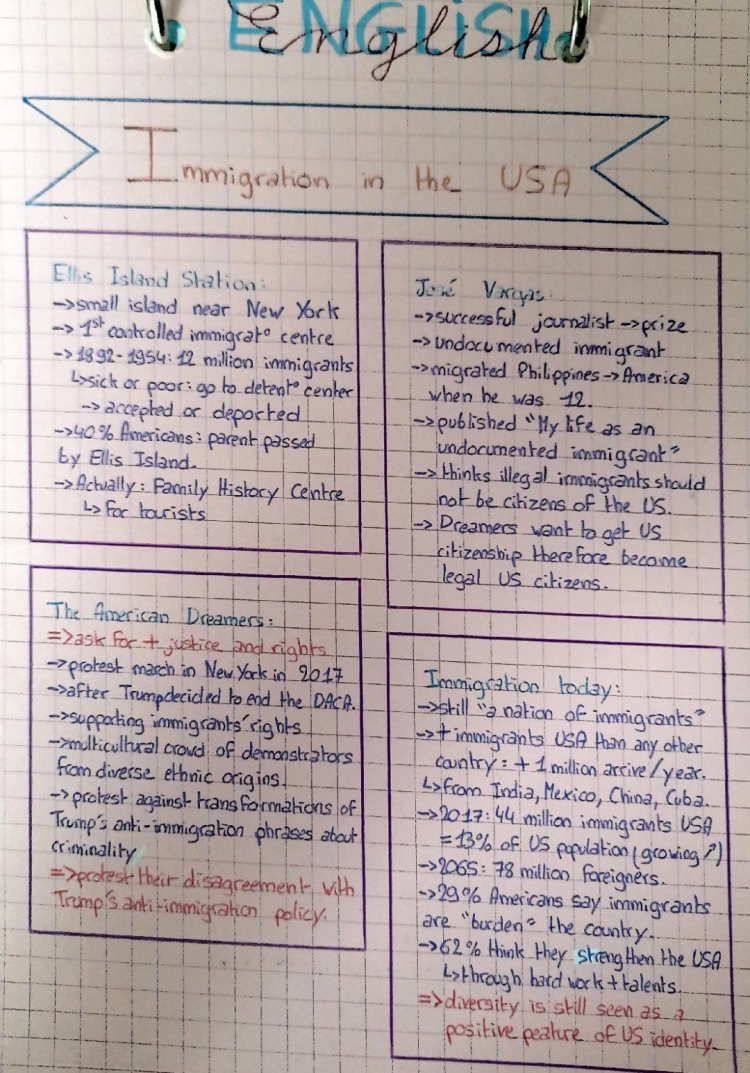 ENGLISH
English
Immigration in the USA
Ellis Island Station:
→small island near New York
→1st controlled immigrat° centre
→1892-1954: 12 million immigrants
↳sick or poor: go to detent° center
→accepted or deported
→40% Americans: parent passed
by Ellis Island.
→Actually: Family History Centre
↳for tourists
José Vargas:
→successful journalist→prize
→undocumented immigrant
→migrated Philippines→America
when he was 12.
→published "My life as an
undocumented immigrant"
→thinks illegal immigrants should
not be citizens of the US.
→Dreamers want to get US
citizenship therefore become
legal US citizens.
The American Dreamers:
=>ask for + justice and rights
→protest march in New York in 2017
→after Trump decided to end the DACA.
→supporting immigrants' rights
→multicultural crowd of demonstrators
from diverse ethnic origins.
→protest against transformations of
Trump's anti-immigration phrases about
criminality
=>protest their disagreement with
Trump's anti-immigration policy.
Immigration today:
→still "a nation of immigrants"
→+ immigrants USA than any other
country: + 1 million arrive/year.
↳from India, Mexico, China, Cuba.
→2017: 44 million immigrants USA
=13% of US population (growing↗)
→2065: 78 million foreigners.
→29% Americans say immigrants
are "burden" the country.
→62% think they strengthen the USA
↳through hard work + talents.
=>diversity is still seen as a
positive peature of US identity.